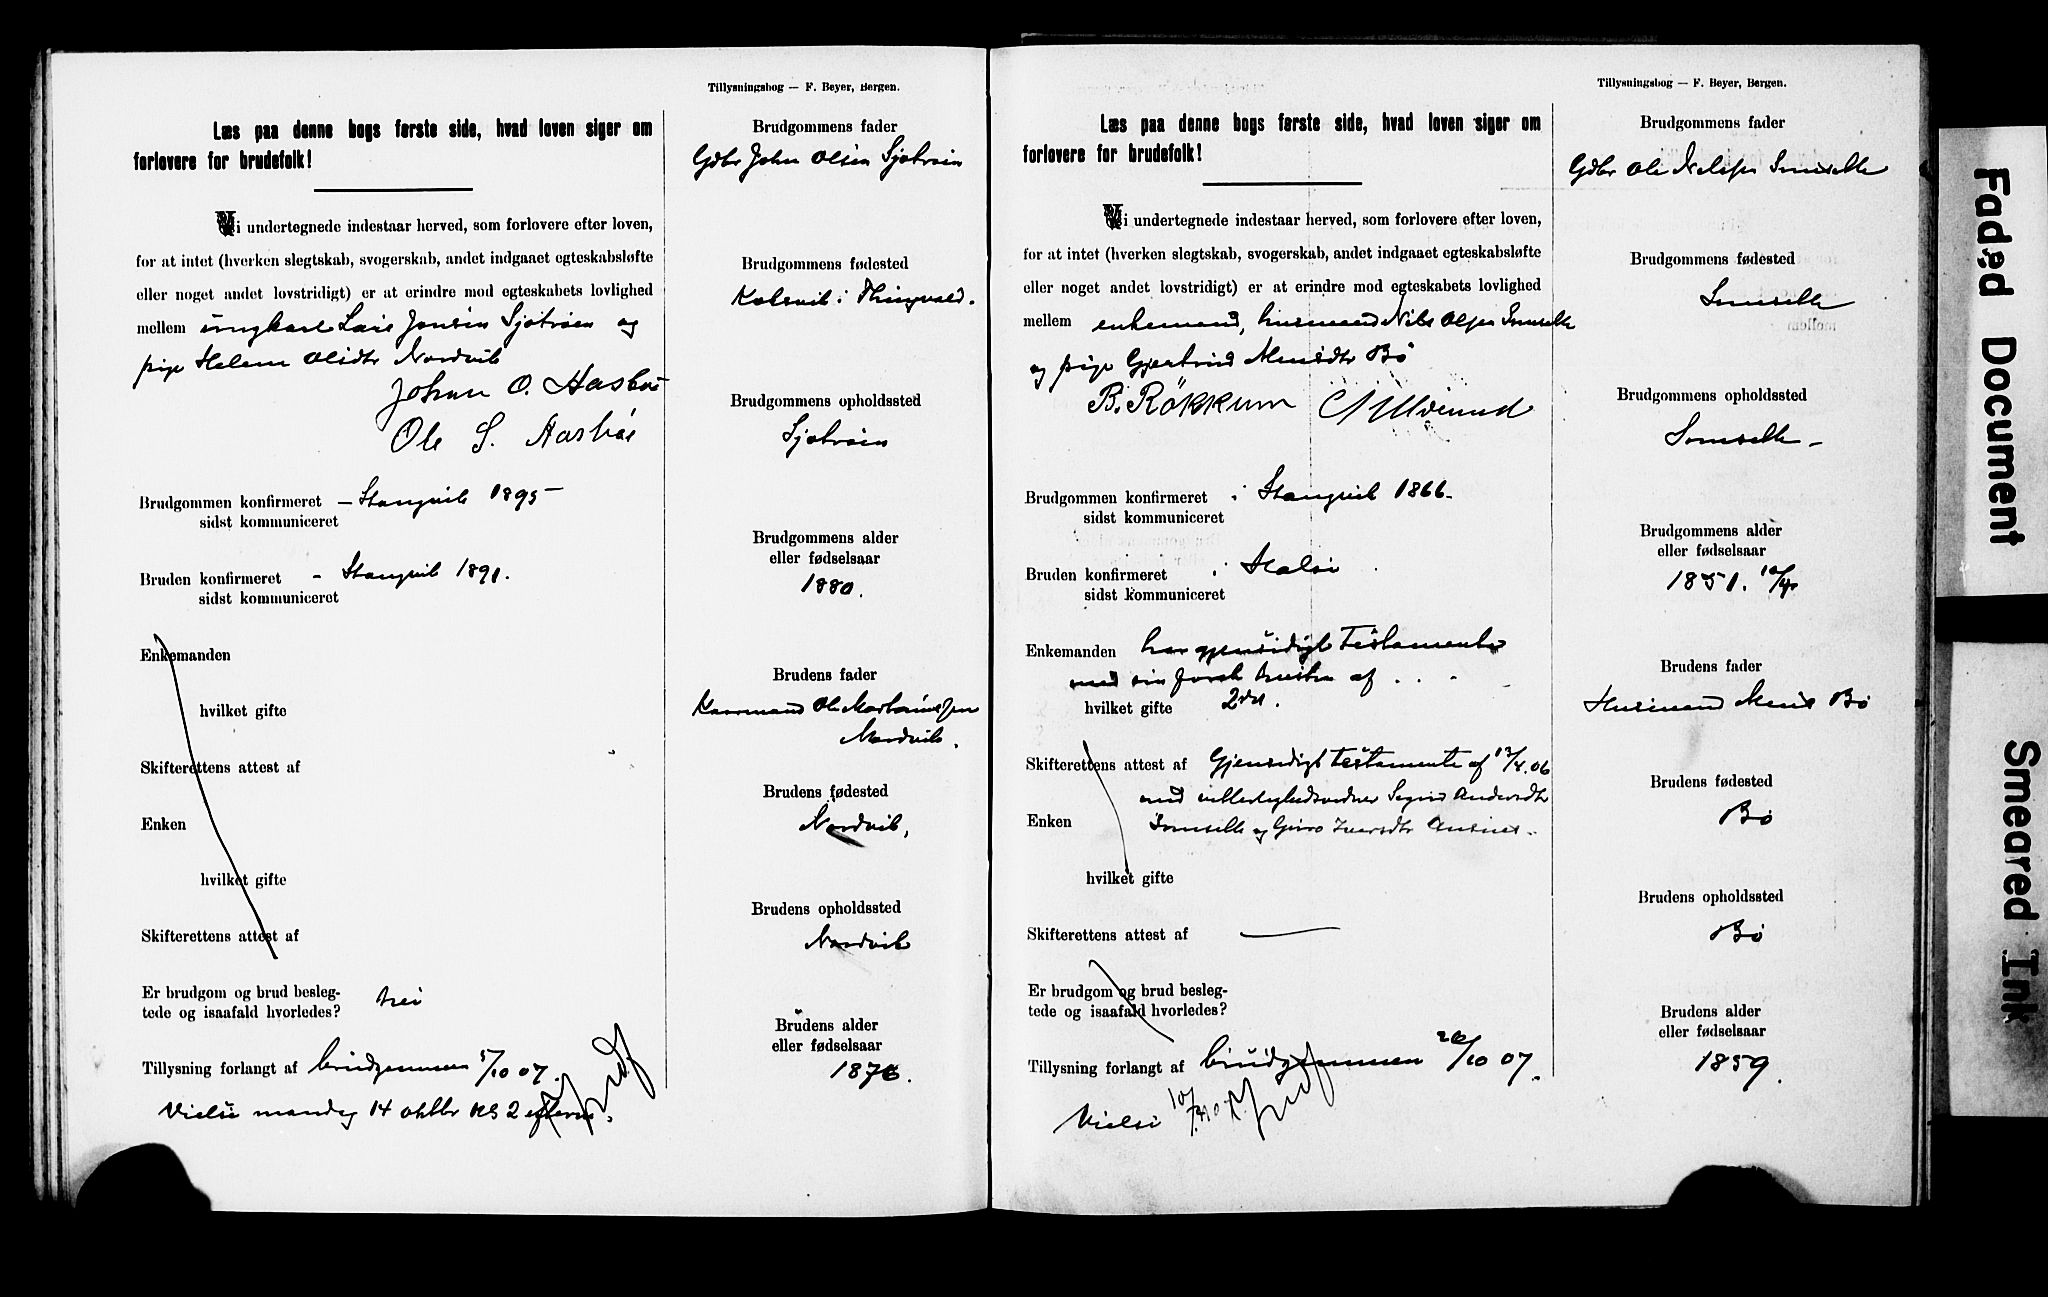 Tillysningsbog — F. Beyer, Bergen.
Læs paa denne bogs første side, hvad loven siger om
forlovere for brudefolk!
Vi undertegnede indestaar herved, som forlovere efter loven,
for at intet (hverken slegtskab, svogerskab, andet indgaaet egteskabsløfte
eller noget andet lovstridigt) er at erindre mod egteskabets lovlighed
mellem ungkarl Lars Jonsen Sjøtrøen og
pige Helene Olsdtr Nordvik
Johan O. Aasbø
Ole S. Aasbøe
Brudgommen konfirmeret – Stangvik 1895 –
sidst kommuniceret
Bruden konfirmeret – Stangvik 1891.
sidst kommuniceret
Enkemanden
hvilket gifte
Skifterettens attest af
Enken
hvilket gifte
Skifterettens attest af
Er brudgom og brud besleg-
tede og isaafald hvorledes? nei
Tillysning forlangt af brudgommen 5/10 07.
Vielse mandag 14 oktbr kl 2 efterm.
Brudgommens fader
Gdbr John Olsen Sjøtrøen
Brudgommens fødested
Kalsvik i Thingvold.
Brudgommens opholdssted
Sjøtrøen
Brudgommens alder
eller fødselsaar
1880.
Brudens fader
Kaarmand Ole
Nordvik.
Brudens fødested
Nordvik,
Brudens opholdssted
Nordvik
Brudens alder
eller fødselsaar
1876.
Tillysningsbog — F. Beyer, Bergen.
Læs paa denne bogs første side, hvad loven siger om
forlovere for brudefolk!
Vi undertegnede indestaar herved, som forlovere efter loven,
for at intet (hverken slegtskab, svogerskab, andet indgaaet egteskabsløfte
eller noget andet lovstridigt) er at erindre mod egteskabets lovlighed
mellem enkemand, husmand Nils Olsen
og pige Gjertrud Monsdtr Bø
B. Røkkum
Brudgommen konfirmeret i Stangvik 1866.
sidst kommuniceret
Bruden konfirmeret i Halse
sidst kommuniceret
Enkemanden har gjensidigt Testamente
med sin forrige hustru af . . .
hvilket gifte 2det.
Skifterettens attest af Gjensidigt Testamente af 13/4.06
med
Enken
hvilket gifte
Skifterettens attest af —
Er brudgom og brud besleg-
tede og isaafald hvorledes?
Tillysning forlangt af brudgommen 26/10 07.
Vielse
Brudgommens fader
Gdbr Ole
Brudgommens fødested
Brudgommens opholdssted
Brudgommens alder
eller fødselsaar
1851.
Brudens fader
Husmand Mons Bø
Brudens fødested
Bø
Brudens opholdssted
Bø
Brudens alder
eller fødselsaar
1859.
Faded Document
Smeared Ink